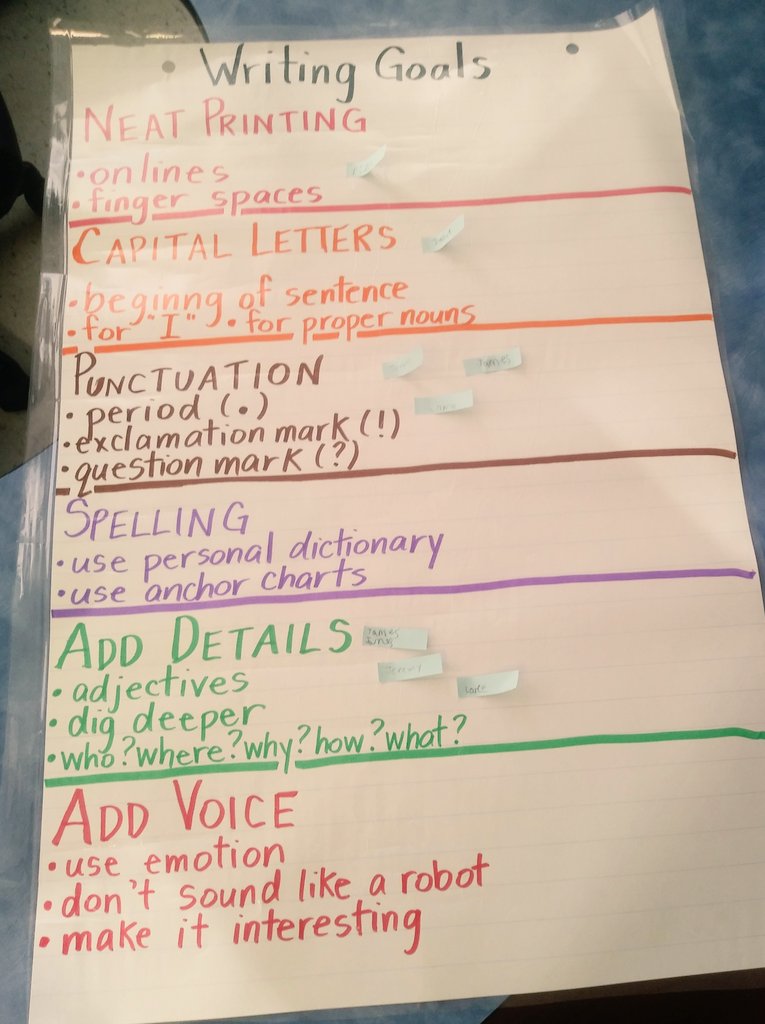 Writing Goals
NEAT PRINTING
• on lines
• finger spaces
CAPITAL LETTERS
• beginng of sentence
• for "I" • for proper nouns
PUNCTUATION
James
• period (.)
• exclamation mark (!)
• question mark (?)
SPELLING
• use personal dictionary
• use anchor charts
ADD DETAILS
James
Jeremy
• adjectives
• dig deeper
• who? where? why? how? what?
ADD VOICE
• use emotion
• don't sound like a robot
• make it interesting